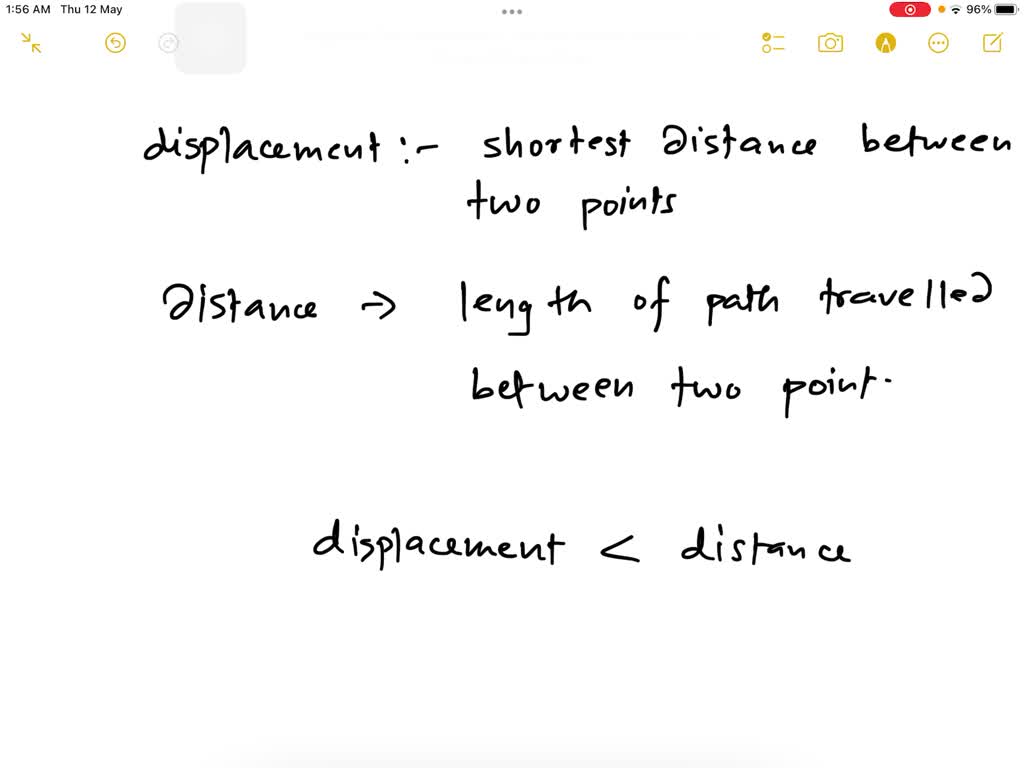 1:56 AM Thu 12 May 96%
displacement :- shortest distance between
two points
distance → length of path travelled
between two point.
displacement < distance